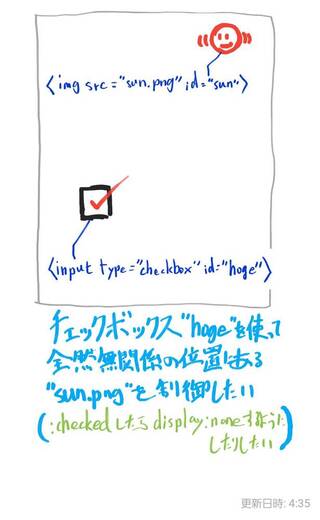 <img src="sun.png" id="sun">
<input type="checkbox" id="hoge">
チェックボックス"hoge"を使って
全然無関係の位置にある
"sun.png"を制御したい
(:checkedしたらdisplay:noneするように
したりしたい)
更新日時: 4:35